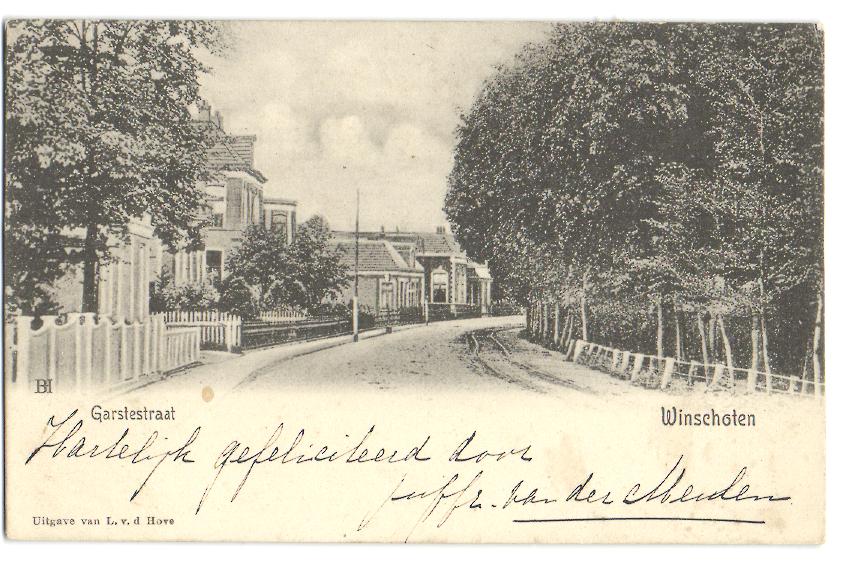 BH
Garstestraat
Winschoten
Hartelijk gefeliciteerd door
juffr. van der Meulen
Uitgave van L. v. d Hove